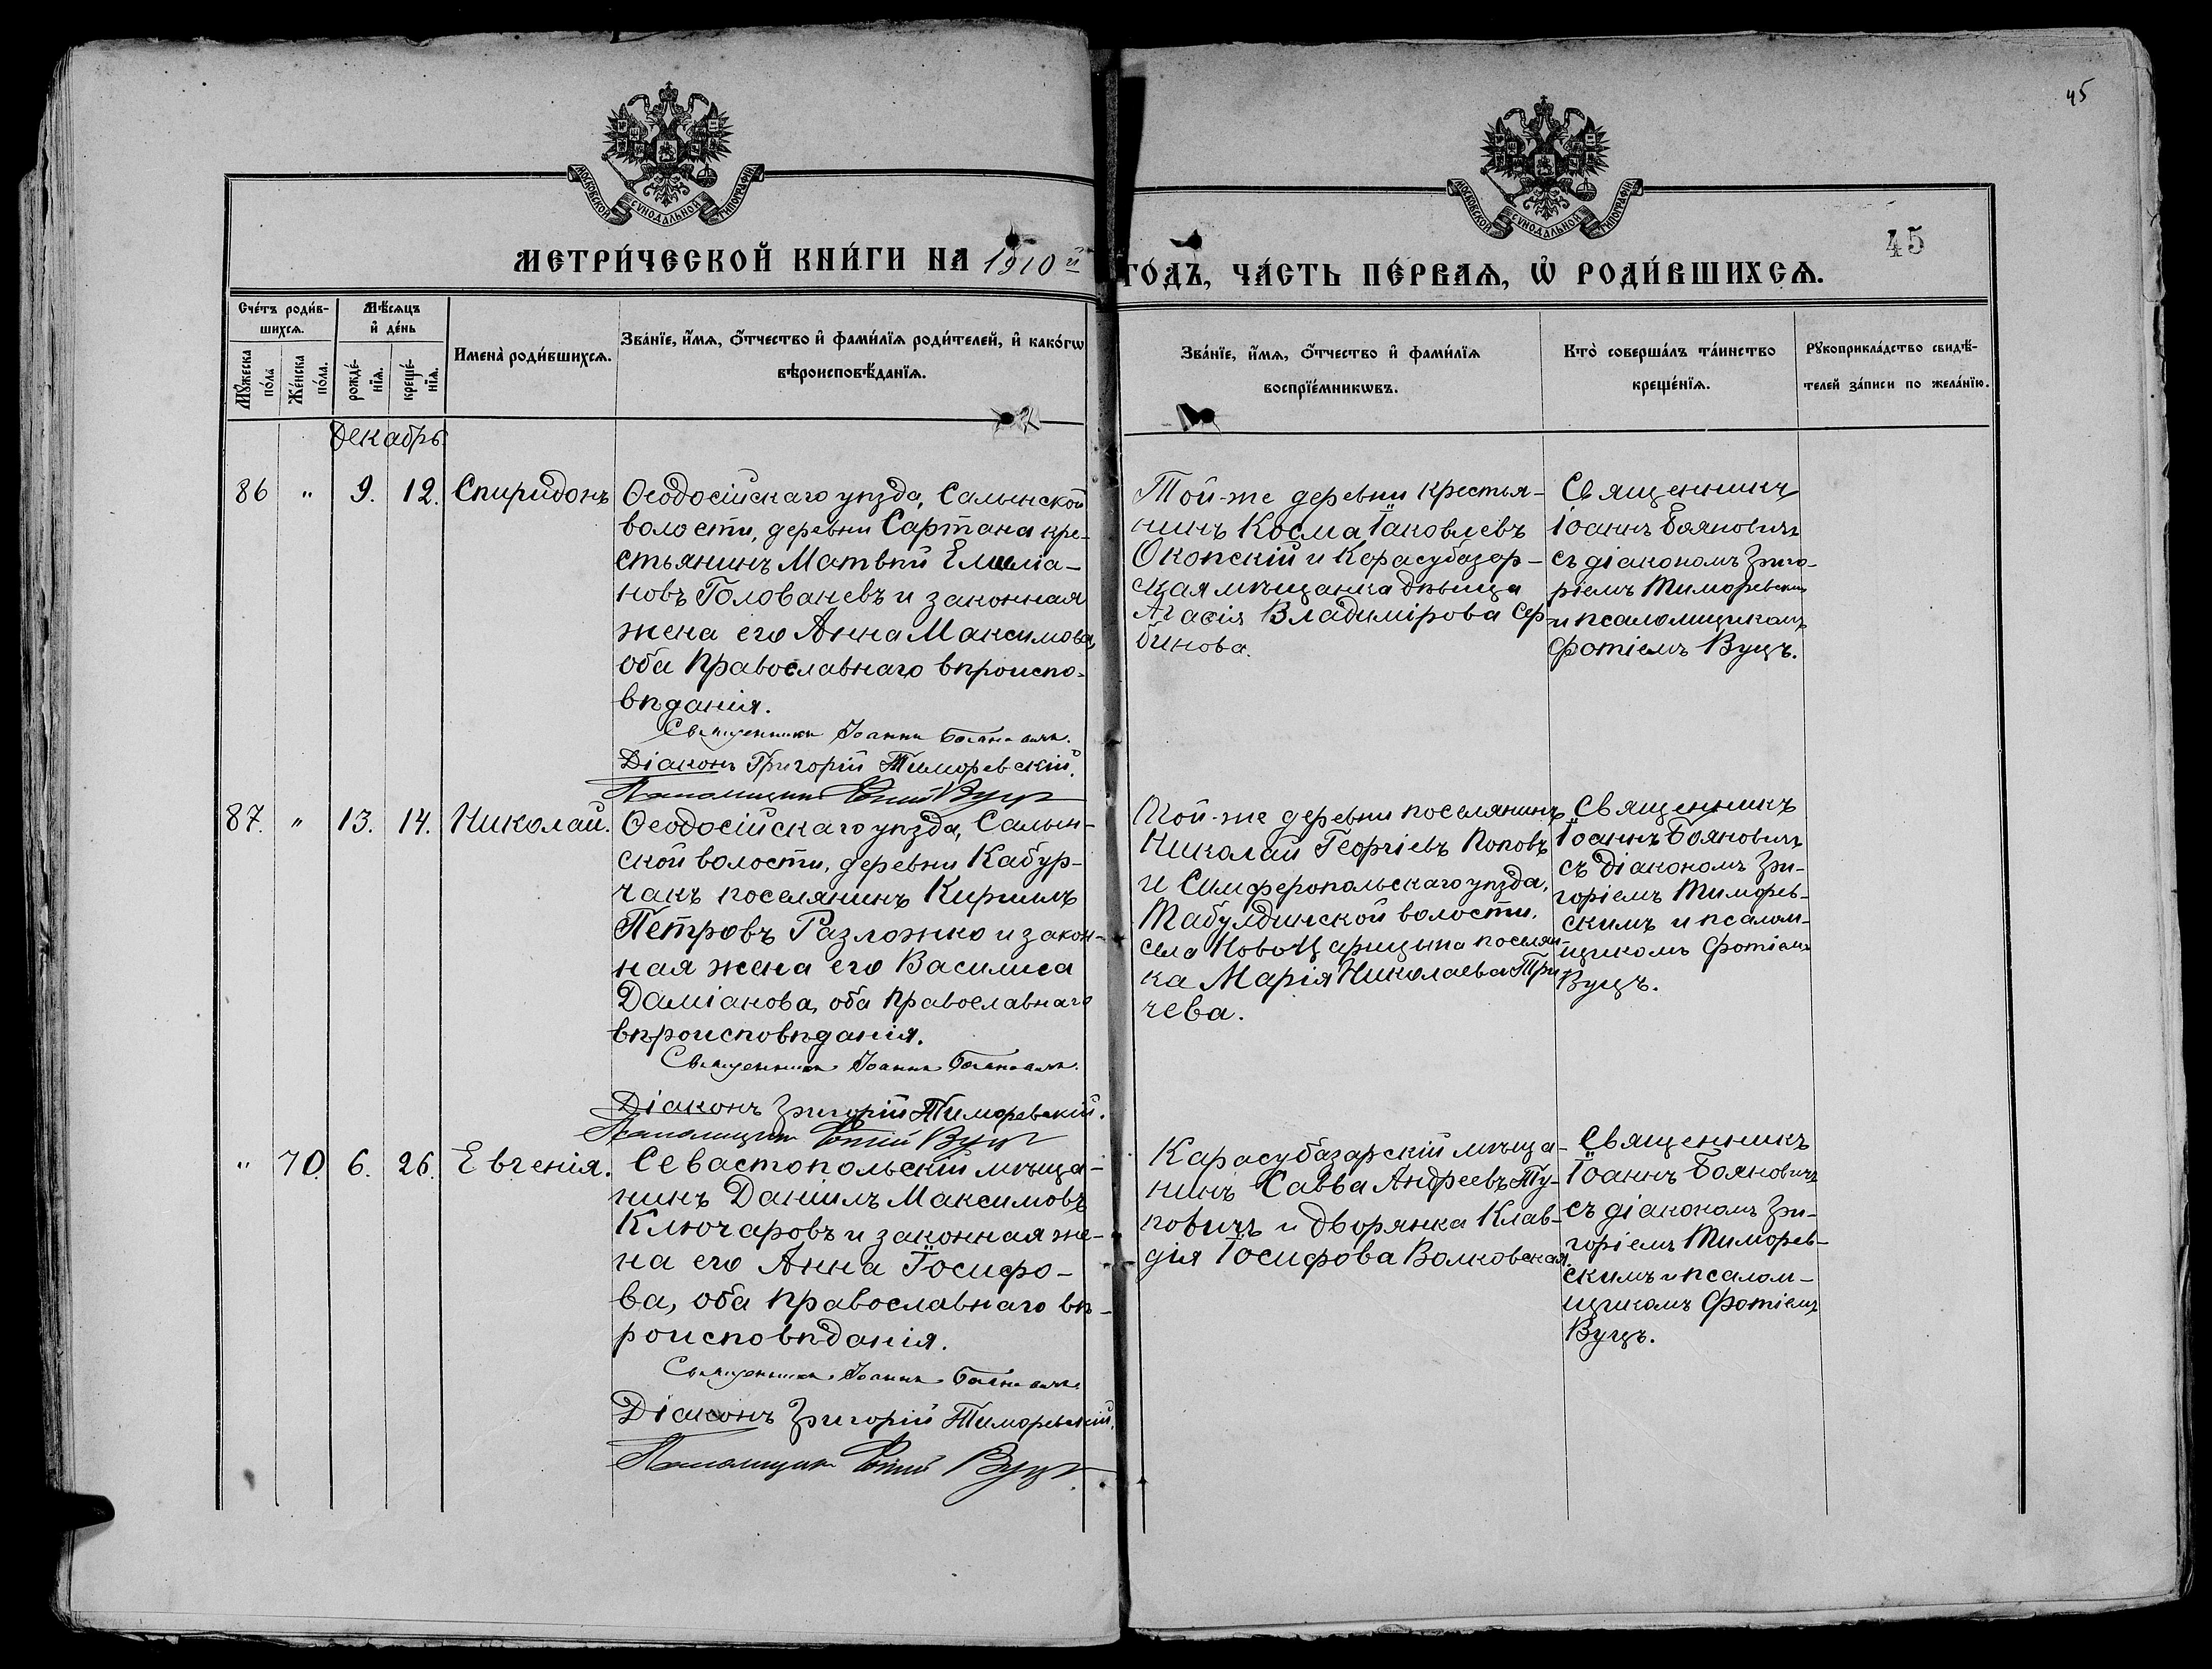 45
МОСКОВСКОЙ СѴНОДАЛЬНОЙ ТИПОГРАФІИ
МОСКОВСКОЙ СѴНОДАЛЬНОЙ ТИПОГРАФІИ
45
МЕТРИ́ЧЕСКОЙ КНИ́ГИ НА 1910й ГО́ДЪ, ЧА́СТЬ ПЕ́РВАѦ, Ѡ҆ РОДИ́ВШИХСѦ.
Сче́тъ роди́в-
шихсѧ.
Мꙋ́жеска
по́ла
Же́нска
по́ла.
Мѣ́сѧцъ
и҆ де́нь
рожде́-
нїѧ.
креще́-
нїѧ.
Имена̀ роди́вшихсѧ.
Зва́нїе, и҆́мѧ, ѻ҆́тчество и҆ фами́лїѧ роди́телей, и҆ како́гѡ
вѣроисповѣ́данїѧ.
Зва́нїе, и҆́мѧ, ѻ҆́тчество и҆ фами́лїѧ
воспрїе́мникѡвъ.
Кто̀ соверша́лъ та́инство
креще́нїѧ.
Рꙋкоприкла́дство свидѣ́-
телей за́писи по жела́нїю.
Декабрь
86 " 9. 12. Спиридонъ
Ѳеодосійскаго уѣзда, Салынской
волости, деревни Сартана кре-
стьянинъ Матвѣй Емеліа-
новъ Голованевъ и законная
жена его Анна Максимова,
оба Православнаго вѣроиспо-
вѣданія.
Священникъ Іоаннъ Бояновичъ.
Діаконъ Григорій Тиморевскій.
Псаломщикъ Фотій Вуцъ
Той-же деревни крестья-
нинъ Косма Іаковлевъ
Окопскій и Карасубазар-
ская мѣщанка дѣвица
Агасія Владимірова Сер-
бинова.
Священникъ
Іоаннъ Бояновичъ
съ діакономъ Григо-
ріемъ Тиморевским
и псаломщикомъ
Фотіемъ Вуцъ.
87. " 13. 14. Николай.
Ѳеодосійскаго уѣзда, Салын-
ской волости, деревни Кабур-
чакъ поселянинъ Кириллъ
Петровъ Разложко и закон-
ная жена его Василиса
Даміанова, оба Православнаго
вѣроисповѣданія.
Священникъ Іоаннъ Бояновичъ.
Діаконъ Григорій Тиморевскій.
Псаломщикъ Фотій Вуцъ
Той-же деревни поселянинъ
Николай Георгіевъ Поповъ
и Симферопольскаго уѣзда,
Табулдинской волости,
села НовоЦарицына поселян-
ка Марія Николаева Три-
чева.
Священникъ
Іоаннъ Бояновичъ
съ Діакономъ Гри-
горіемъ Тиморев-
скимъ и псалом-
щикомъ Фотіемъ
Вуцъ.
" 70. 6. 26. Евгенія.
Севастопольскій мѣща-
нинъ Даніилъ Максимовъ
Ключаровъ и законная же-
на его Анна Іосифо-
ва, оба православнаго вѣ-
роисповѣданія.
Священникъ Іоаннъ Бояновичъ
Діаконъ Григорій Тиморевскій.
Псаломщикъ Фотій Вуцъ.
Карасубазарскій мѣща-
нинъ Савва Андреевъ Ту-
повичъ и дворянка Клав-
дія Іосифова Волковская.
Священникъ
Іоаннъ Бояновичъ
съ діакономъ Гри-
горіемъ Тиморев-
скимъ и псалом-
щикомъ Фотіемъ
Вуцъ.